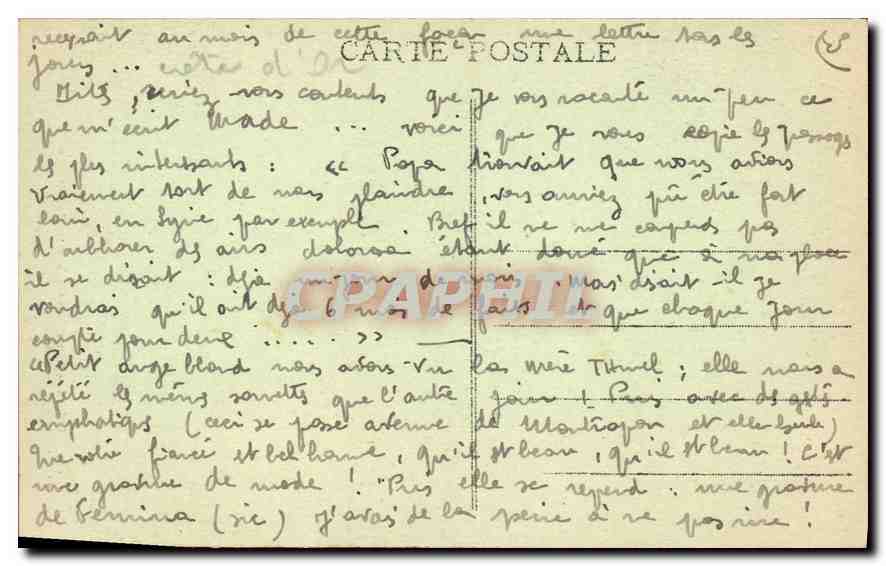 recevrait au mois de cette façon une lettre tous les
CARTE POSTALE
jours ...
, seriez vous contents que je vous raconte un peu ce
que m'écrit Made ... voici que je vous copie les passages
les plus intéressants : « Papa trouvait que nous avions
vraiment tort de nous plaindre, vous auriez pu être fort
loin, en Syrie par exemple. Bref il ne me comprends pas
d'arborer des airs dolorosa étant donné que à ma place
il se disait : déjà un jour de moi . Mais disait-il je
voudrais qu'il ait déjà 6 mois de faits et que chaque jour
compte pour deux ..... »
CPAPHIL
« Petit ange blond nous avons vu la mère ; elle nous a
répété les mêmes sornettes que l'autre jour ! Puis avec des gestes
emphatiques (ceci se passe avenue de et elle seule)
que votre fiancé est bel homme, qu'il est beau, qu'il est beau ! C'est
une gravure de mode ! " Puis elle se reprend : une gravure
de Femina (sic) j'avais de la peine à ne pas rire !